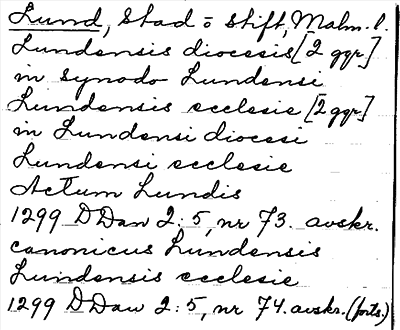 Lund, Stad = stift, Malm. l.
Lundensis diocesis [2 ggr]
in synodo Lundensi
Lundensis ecclesie [2 ggr]
in Lundensi diocesi
Lundensi ecclesie
Actum Lundis
1299 DDan 2:5, nr 73. avskr.
canonicus Lundensis
Lundensis ecclesie
1299 DDan 2:5, nr 74. avskr. (forts.)